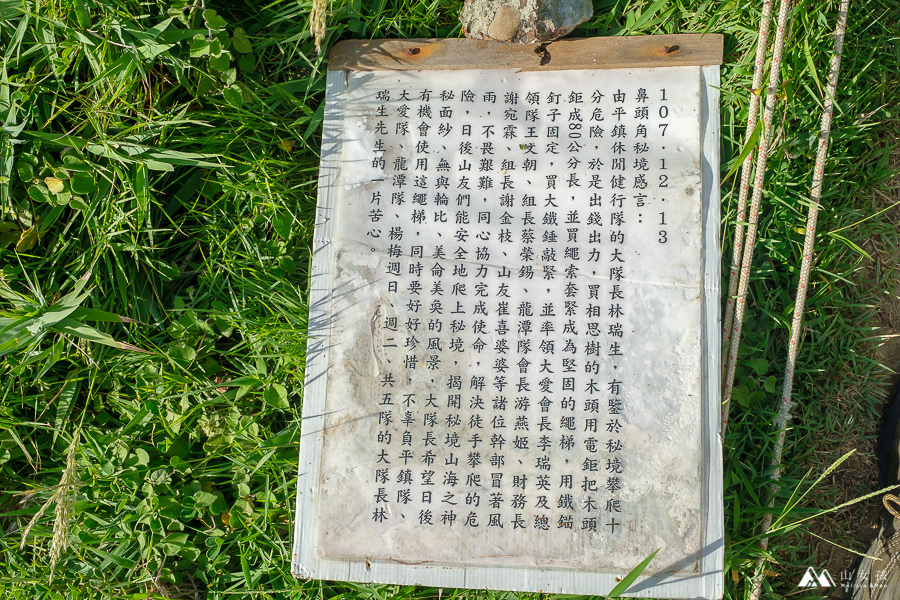 107.12.13
鼻頭角秘境感言：
由平鎮休閒健行隊的大隊長林瑞生，有鑒於秘境攀爬十
分危險，於是出錢出力，買相思樹的木頭用電鉅把木頭
鉅成88公分長，並買繩索套緊成為堅固的繩梯，用鐵錨
釘子固定，買大鐵錘敲緊，並率領大愛會長李瑞英及總
領隊王文朝、組長蔡榮錫、龍潭隊會長游燕姬、財務長
謝宛霖、組長謝金枝、山友崔喜婆婆等諸位幹部冒著風
雨，不畏艱難，同心協力完成使命，解決徒手攀爬的危
險，日後山友們能安全地爬上秘境，揭開秘境山海之神
秘面紗、無與輪比、美侖美奐的風景，大隊長希望日後
有機會使用這繩梯，同時要好好珍惜，不辜負平鎮隊、
大愛隊、龍潭隊、楊梅週日、週二、共五隊的大隊長林
瑞生先生的一片苦心。
山女孩